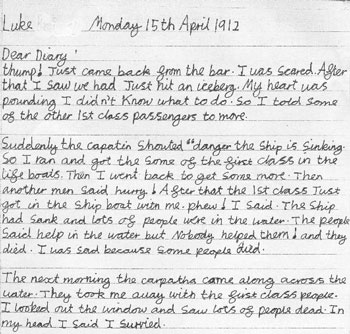 Luke Monday 15th April 1912
Dear Diary,
thump! Just came back from the bar. I was scared. After
that I saw we had Just hit an iceberg. My heart was
pounding I didn't Know what to do. So I told some
of the other 1st class passengers to more.
Suddenly the capatin shouted "danger the ship is sinking.
So I ran and got the some of the first class in the
life boats. Then I went back to get some more. Then
another men said hurry! After that the 1st class Just
got in the ship boat with me. phew! I said. The ship
had sank and lots of people were in the water. The people
Said help in the water but Nobody helped them! and they
died. I was sad because some people died.
The next morning the carpatha came along across the
water. They took me away with the first class people.
I looked out the window and saw lots of people dead. In
my head I said I survied.